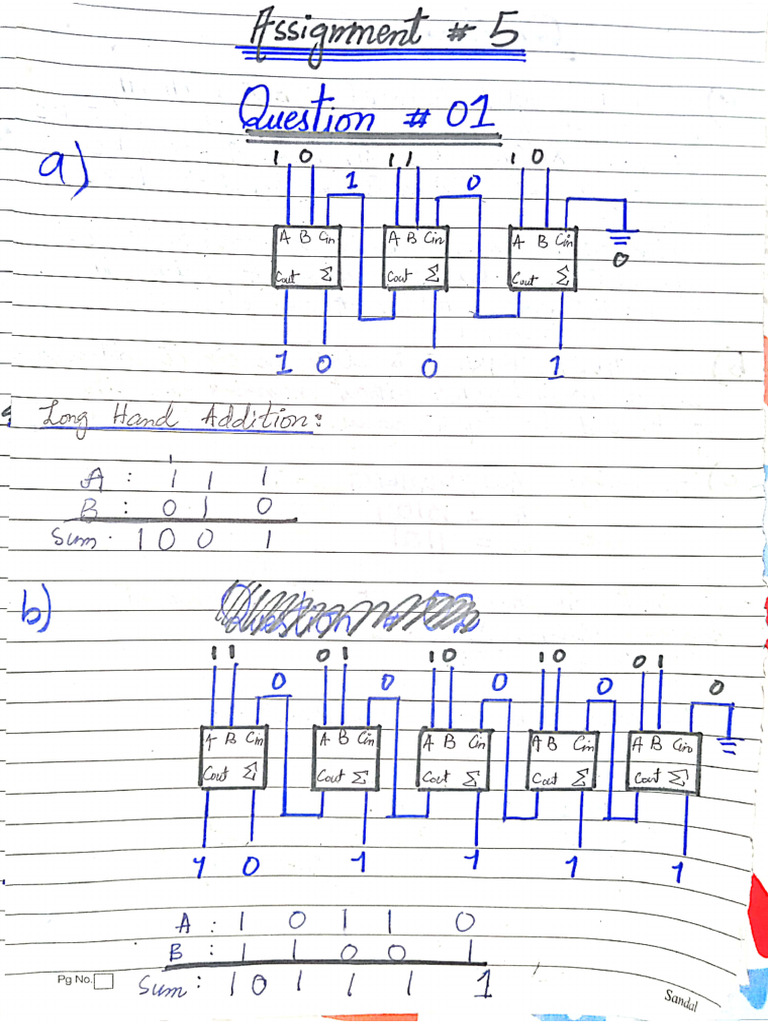 Assignment # 5
Question # 01
a)
1 0 1 1 1 0
1 0
A B Cin A B Cin A B Cin
0
Cout Σ Cout Σ Cout Σ
1 0 0 1
Long Hand Addition:
1
A : 1 1 1
B : 0 1 0
Sum. 1 0 0 1
b)
1 1 0 1 1 0 1 0 0 1
0 0 0 0 0
A B Cin A B Cin A B Cin A B Cin A B Cin
Cout Σ Cout Σ Cout Σ Cout Σ Cout Σ
1 0 1 1 1 1
A : 1 0 1 1 0
B : 1 1 0 0 1
Sum : 1 0 1 1 1 1
Pg No.
Sandal